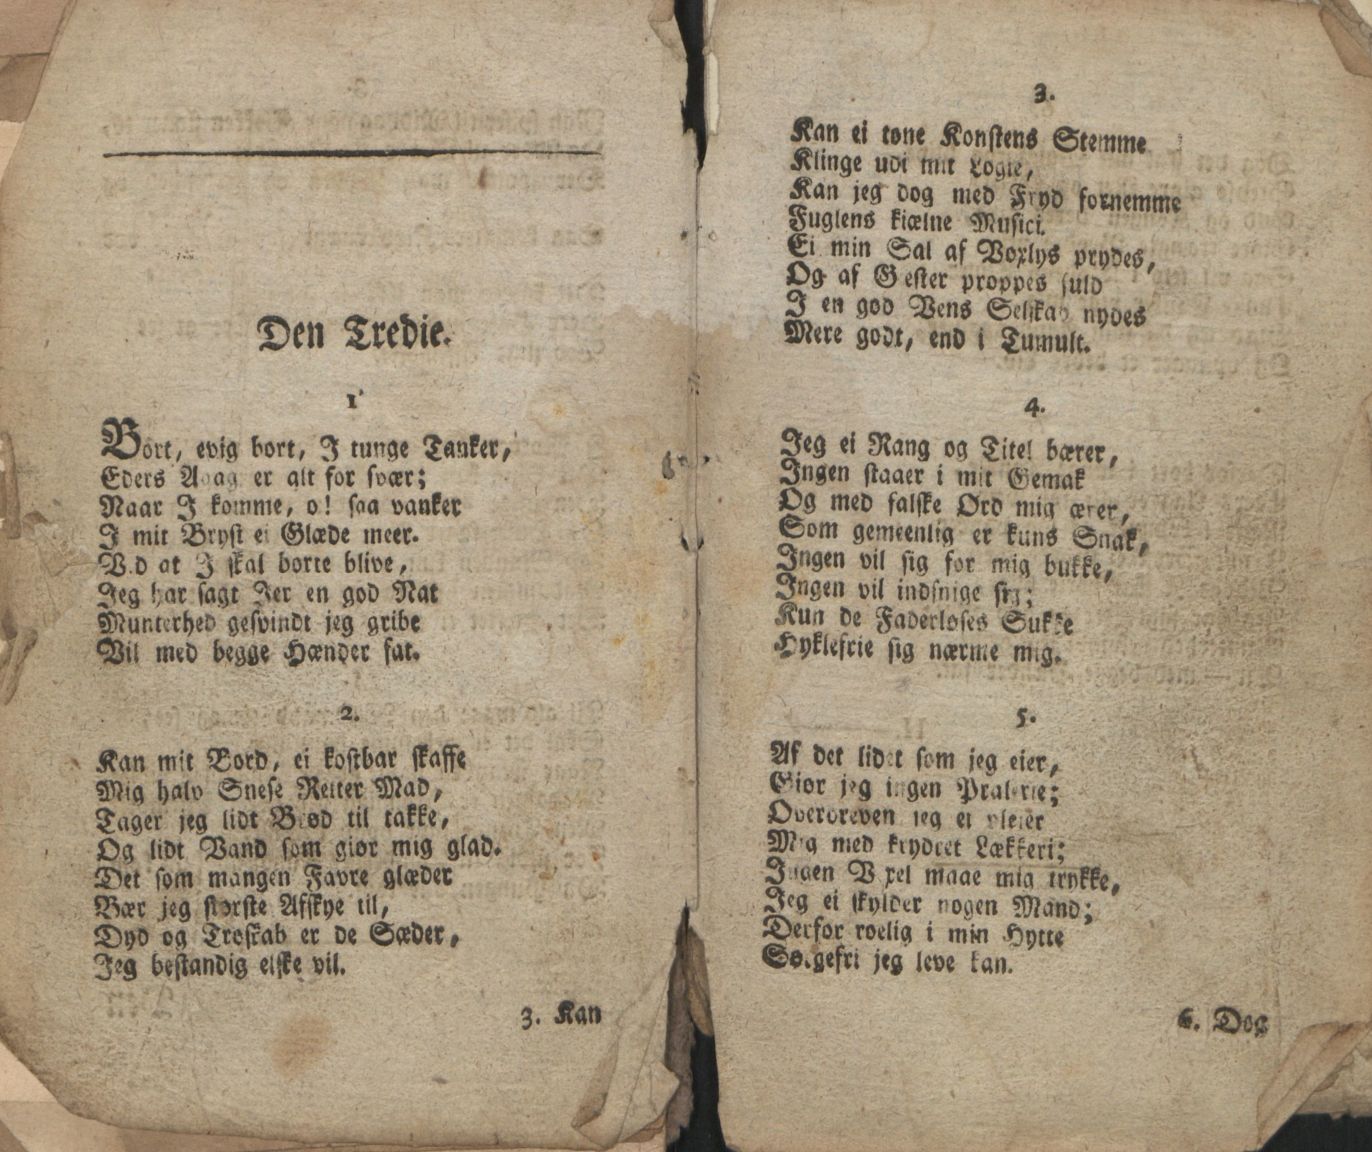 Den Tredie.
1
Bort, evig bort, I tunge Tanker,
Eders Aag er alt for svær;
Naar I komme, o! saa vanker
I mit Bryst ei Glæde meer.
Vid at I skal borte blive,
Jeg har sagt Jer en god Nat
Munterhed gesvindt jeg gribe
Vil med begge Hænder fat.
2.
Kan mit Bord, ei kostbar skaffe
Mig halv Snese Retter Mad,
Tager jeg lidt Brød til takke,
Og lidt Vand som giør mig glad.
Det som mangen Favre glæder
Bær jeg største Afskye til,
Dyd og Troskab er de Sæder,
Jeg bestandig elske vil.
3. Kan
3.
Kan ei tone Konstens Stemme
Klinge udi mit Logie,
Kan jeg dog med Fryd fornemme
Fuglens kiælne Musici.
Ei min Sal af Voxlys prydes,
Og af Gester proppes fuld
I en god Vens Selskab nydes
Mere godt, end i Tumult.
4.
Jeg ei Rang og Titel bærer,
Ingen staaer i mit Gemak
Og med falske Ord mig ærer,
Som gemeenlig er kuns Snak,
Ingen vil sig for mig bukke,
Ingen vil indsnige sig;
Kun de Faderløses Sukke
Hyklefrie sig nærme mig.
5.
Af det lidet som jeg eier,
Giør jeg ingen Pralerie;
Overdreven jeg ei pleier
Mig med krydret Lækkeri;
Ingen Vexel maae mig trykke,
Jeg ei skylder nogen Mand;
Derfor roelig i min Hytte
Sørgefri jeg leve kan.
6. Dog